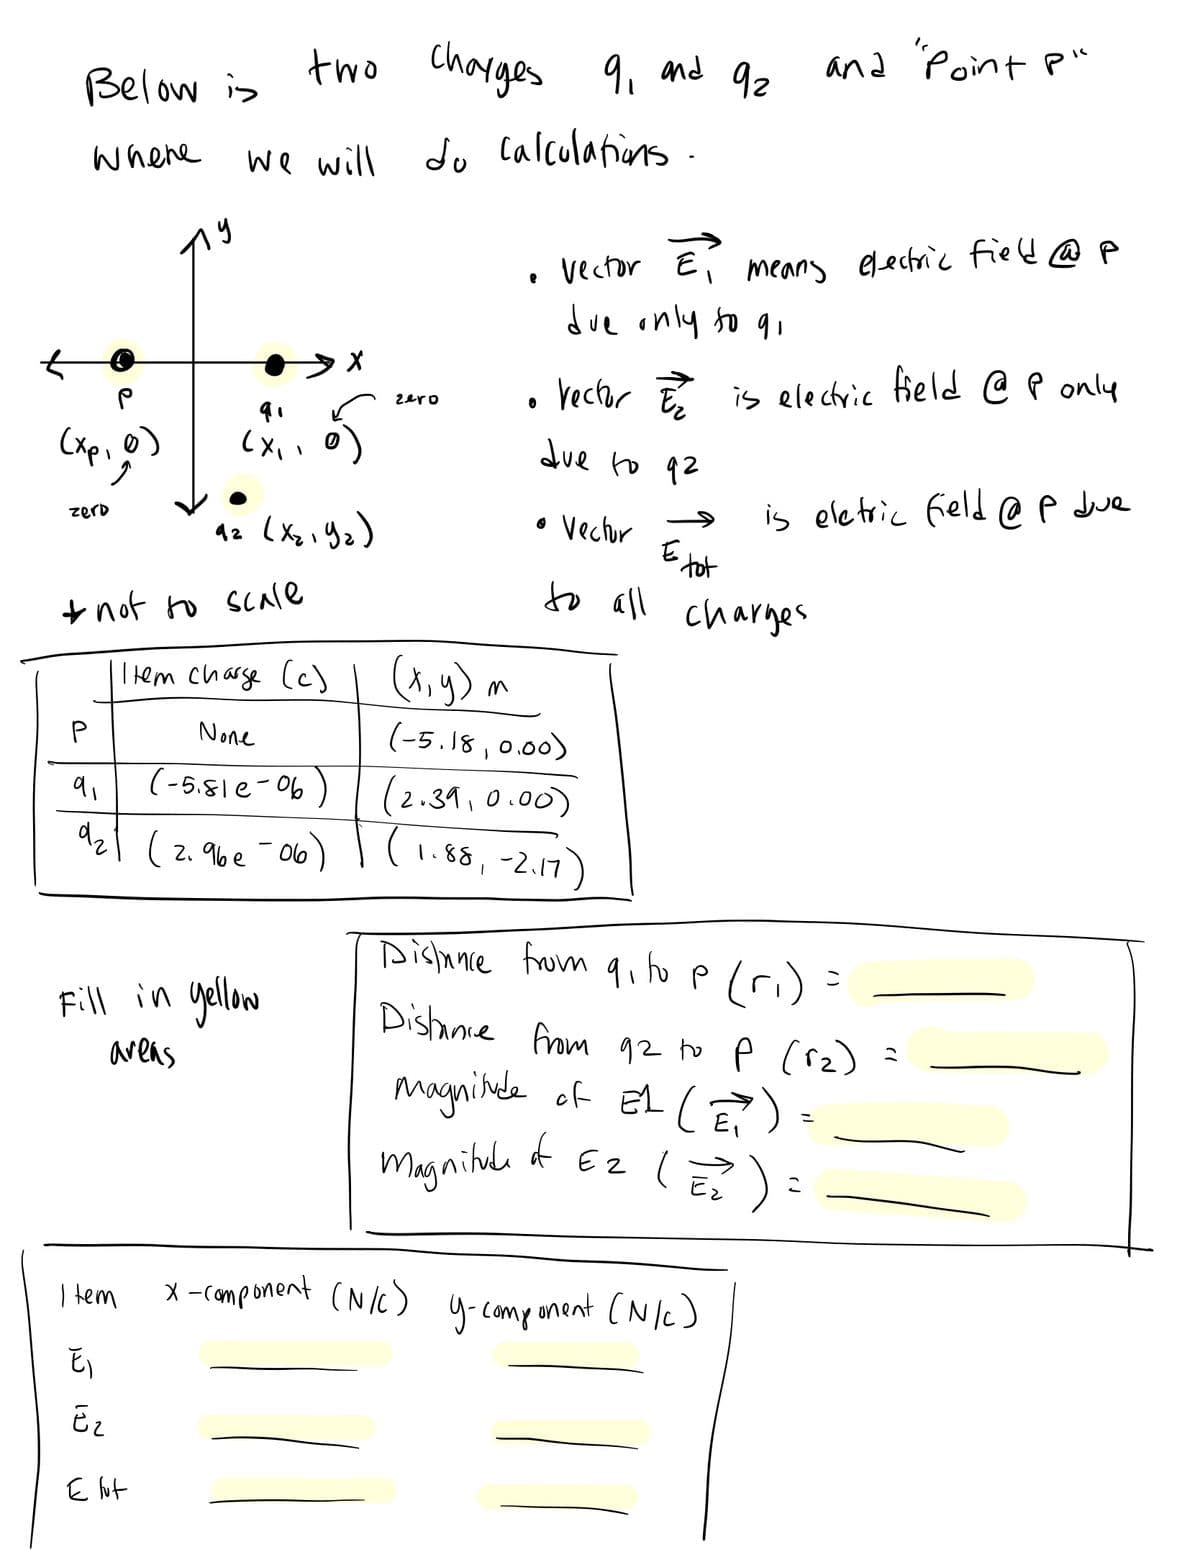 Below is two charges q1 and q2 and "Point P"
where we will do calculations.
y
x
P
q1
zero
(xp, 0)
(x1, 0)
zero
q2 (x2, y2)
* not to scale
• vector E1 means electric field @ P
due only to q1
• vector E2 is electric field @ P only
due to q2
• Vector Etot is eletric field @ P due
to all charges
Item charge (c) (x,y) m
P None (-5.18, 0.00)
q1 (-5.81e-06) (2.39, 0.00)
q2 (2.96e-06) (1.88, -2.17)
Fill in yellow
areas
Distance from q1 to P (r1) =
Distance from q2 to P (r2) =
Magnitude of E1 (E1) =
Magnitude of E2 (E2) =
Item x-component (N/C) y-component (N/C)
E1
E2
E tot